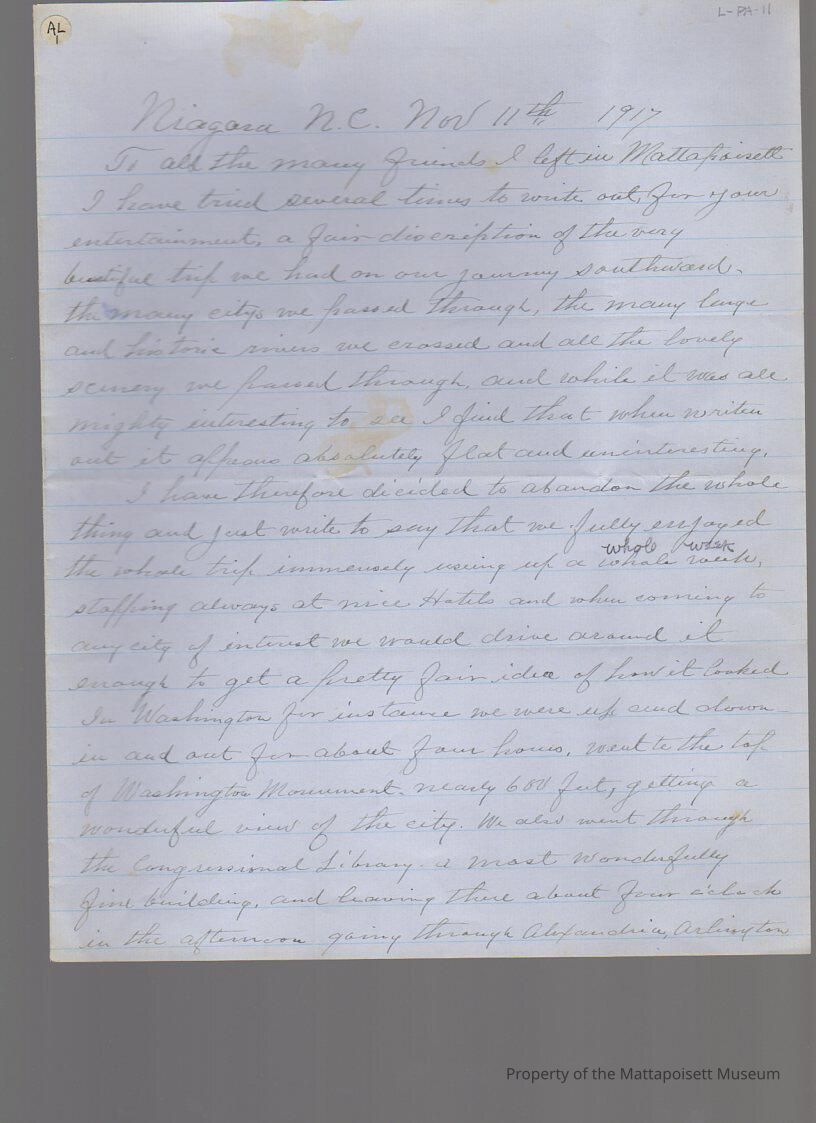 AL
1
L-PA-11
Niagara N.C. Nov 11th 1917
To all the many friends I left in Mattapoisett
I have tried several times to write out, for your
entertainment, a fair discription of the very
beutiful trip we had on our journey southward.
the many citys we passed through, the many large
and historic rivers we crossed and all the lovely
scenery we passed through, and while it was all
mighty interesting to see I find that when writen
out it appears absolutely flat and uninteresting.
I have therefore decided to abandon the whole
thing and just write to say that we fully enjoyed
whole week
the whole trip immensely useing up a whole week,
stopping always at nice Hotels and when coming to
any city of interest we would drive around it
enough to get a pretty fair idea of how it looked
In Washington for instance we were up and down
in and out for about four hours, went to the top
of Washington Monument. nearly 600 feet, getting a
wonderful view of the city. We also went through
the Congressional Library. a most wonderfully
fine building, and leaving there about four o'clock
in the afternoon going through Alexandria, Arlington
Property of the Mattapoisett Museum